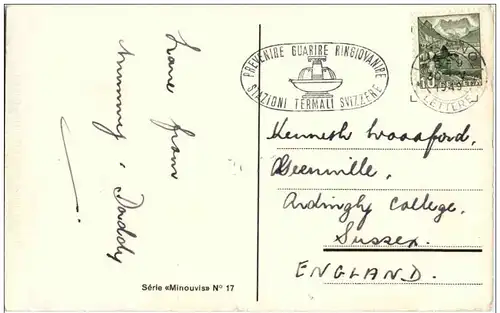 Love from
Mummy & Daddy
PREVENIRE GUARIRE RINGIOVANIRE
STAZIONI TERMALI SVIZZERE
1949
LETTERE
Kenneth
Ardingly College,
Sussex.
ENGLAND.
Série «Minouvis» Nº 17